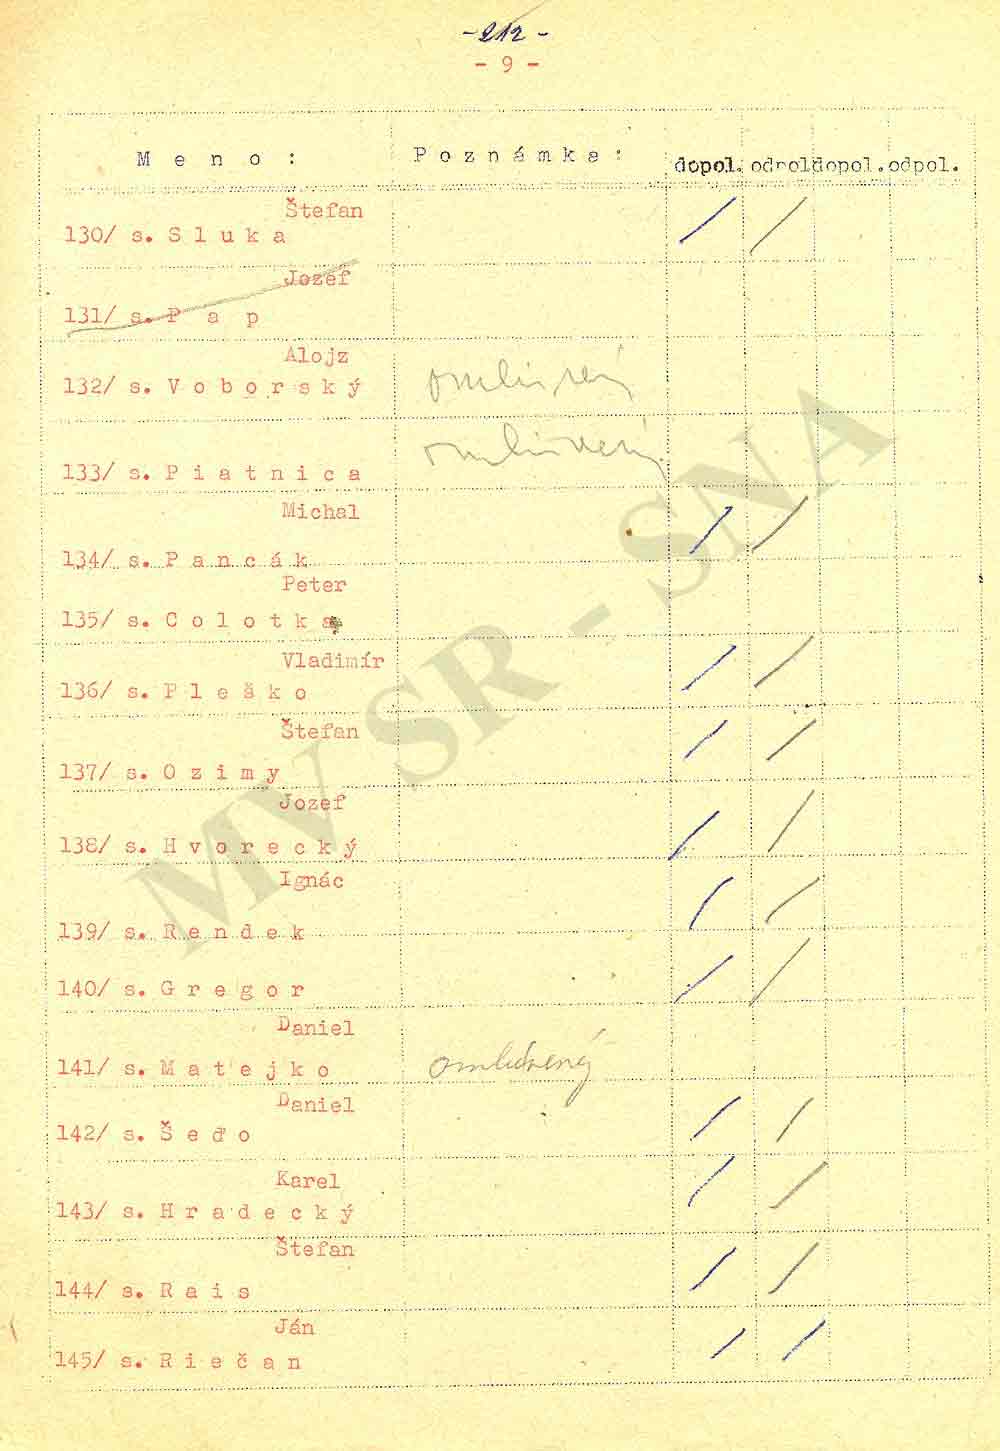 -212-
- 9 -
Meno: Poznámka: dopol. odpol dopol. odpol.
Štefan
130/ s. Sluka
Jozef
131/ s. Pap
Alojz
132/ s. Voborský omluvený
omluvený
133/ s. Piatnica
Michal
134/ s. Pancák
Peter
135/ s. Colotka
Vladimír
136/ s. Pleško
Štefan
137/ s. Ozimy
Jozef
138/ s. Hvorecký
Ignác
139/ s. Rendek
140/ s. Gregor
Daniel
141/ s. Matejko omluvený
Daniel
142/ s. Šeďo
Karel
143/ s. Hradecký
Štefan
144/ s. Rais
Ján
145/ s. Riečan
MV SR - SNA